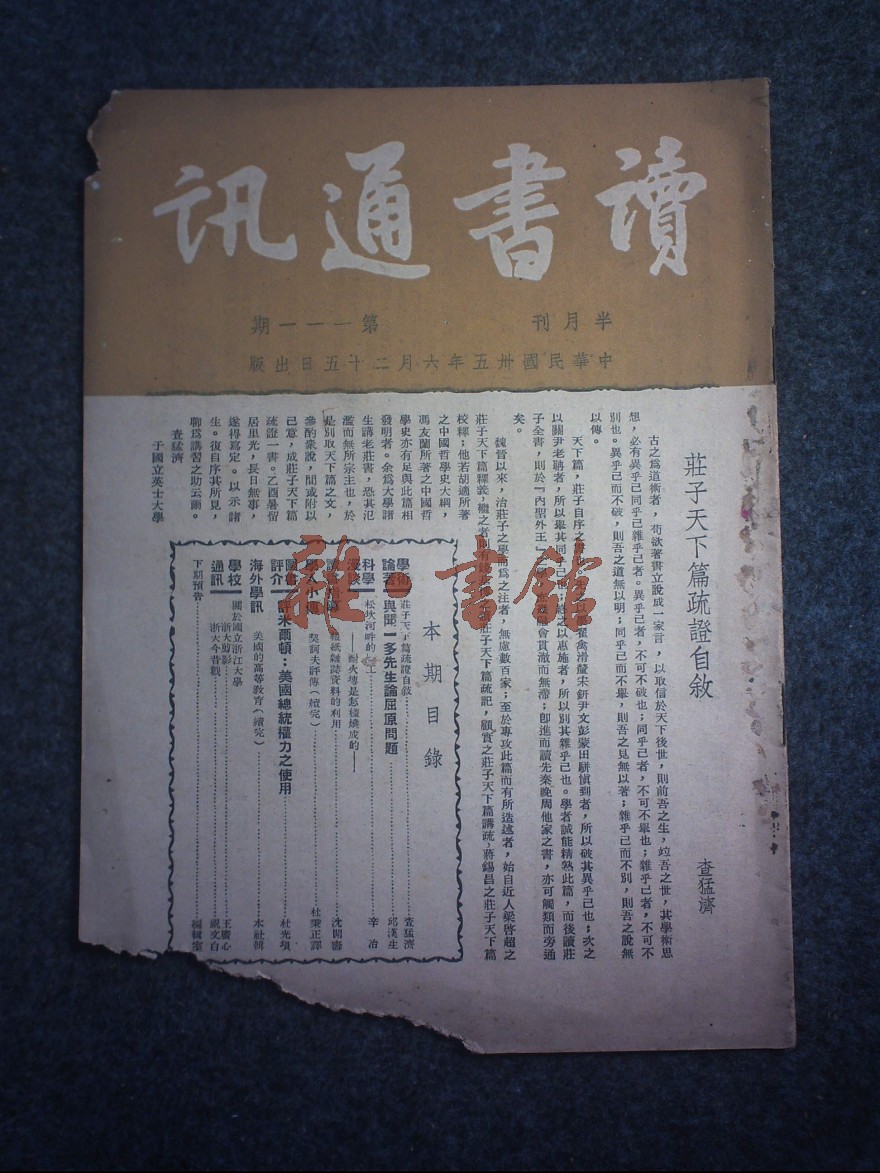 讀書通訊
半月刊 第一一一期
中華民國卅五年六月二十五日出版
莊子天下篇疏證自敘
查猛濟
古之為道術者,苟欲著書立說成一家言,以取信於天下後世,則前吾之生,竝吾之世,其學術思
想,必有異乎己同乎己雜乎己者。異乎己者,不可不破也;同乎己者,不可不舉也;雜乎己者,不可不
別也。異乎己而不破,則吾之道無以明;同乎己而不舉,則吾之見無以著;雜乎己而不別,則吾之說無
以傳。
天下篇,莊子自序之書也,翟禽滑釐宋鈃尹文彭蒙田駢愼到者,所以破其異乎己也;次之
以關尹老聃者,所以舉其同乎己也;終之以惠施者,所以別其雜乎己也。學者誠能精熟此篇,而後讀莊
子全書,則於「內聖外王」會貫澈而無滯;卽進而讀先秦晚周他家之書,亦可觸類而旁通
矣。
魏晉以來,治莊子之學而為之注者,無慮數百家;至於專攻此篇而有所造述者,始自近人梁啓超之
莊子天下篇釋義,繼之者則有錢基博之讀莊子天下篇疏記,顧實之莊子天下篇講疏,蔣錫昌之莊子天下篇
校釋;他若胡適所著
之中國哲學史大綱,
馮友蘭所著之中國哲
學史亦有足與此篇相
發明者。余為大學諸
生講老莊書,恐其氾
濫而無所宗主也,於
是別取天下篇之文,
參酌衆說,間或附以
己意,成莊子天下篇
疏證一書。乙酉暑留
居里光,長日無事,
遂得寫定。以示諸
生。復自序其所見,
聊為講習之助云爾。
查猛濟
于國立英士大學
本期目錄
學術 莊子天下篇疏證自敘 查猛濟
論著 與聞一多先生論屈原問題 邱漢生
科學 松坎河畔的 辛冶
——耐火磚是怎樣燒成的——
報紙雜誌資料的利用 沈開壽
學人小傳 契訶夫評傳(續完) 杜秉正譯
圖書評介 評米爾頓:美國總統權力之使用 杜光塤
海外學訊 美國的高等敎育(續完) 本社輯
學校通訊 關於國立浙江大學
浙大剪影 王
浙大今昔觀 祝文白
下期預告 編輯室
雜·書館